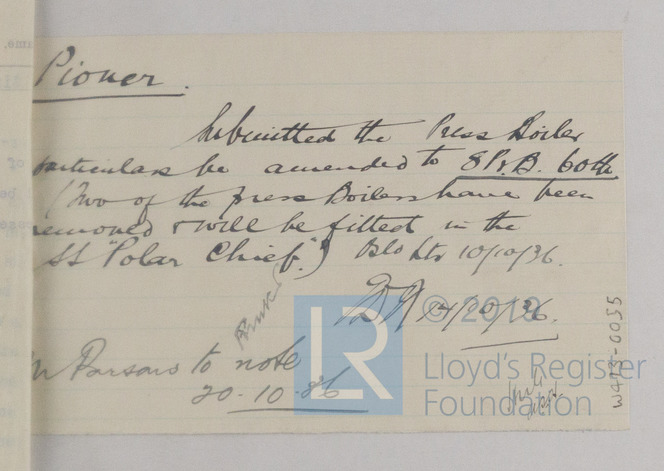 Pioner.
Submitted the Press Boiler
particulars be amended to 8 Pr. B. 60 lb
(Two of the press Boilers have been
removed & will be fitted in the
SS "Polar Chief.") Blo ltr 10/10/36.
14/10/36.
Mr Parsons to note
20.10.36
© 2019
LR
Lloyd's Register
Foundation
W413-0055